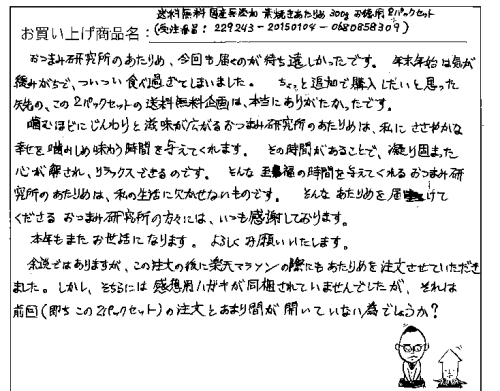 送料無料 国産無添加 素焼きあたりめ 300g お徳用 2パックセット
お買い上げ商品名：(受注番号：229243-20150104-0680858309)
おつまみ研究所のあたりめ、今回も届くのが待ち遠しかったです。年末年始は気が
緩みがちで、ついつい食べ過ぎてしまいました。ちょっと追加で購入したいと思った
矢先の、この2パックセットの送料無料企画は、本当にありがたかったです。
噛むほどにじんわりと滋味が広がるおつまみ研究所のあたりめは、私にささやかな
幸せを噛みしめ味わう時間を与えてくれます。その時間があることで、凝り固まった
心が解され、リラックスできるのです。そんな至福の時間を与えてくれるおつまみ研
究所のあたりめは、私の生活に欠かせないものです。そんなあたりめを届けて
くださるおつまみ研究所の方々には、いつも感謝しております。
本年もまたお世話になります。よろしくお願いいたします。
余談ではありますが、この注文の後に楽天マラソンの際にもあたりめを注文させていただき
ました。しかし、そちらには感想用ハガキが同梱されていませんでしたが、それは
前回(即ちこの2パックセット)の注文とあまり間が開いていない為でしょうか？